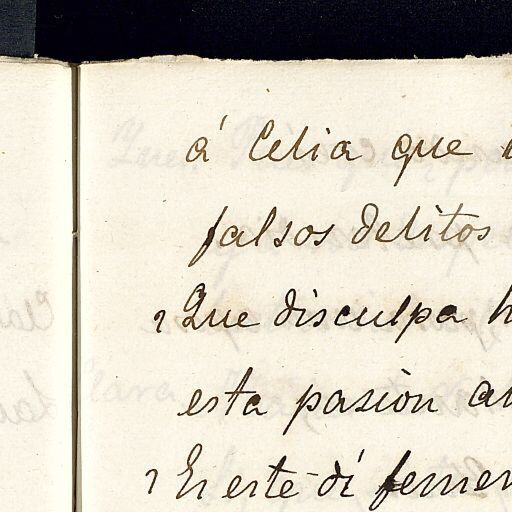 á Celia que
falsos delitos
¿Que disculpa h
esta pasiòn
¿Es este dí femen